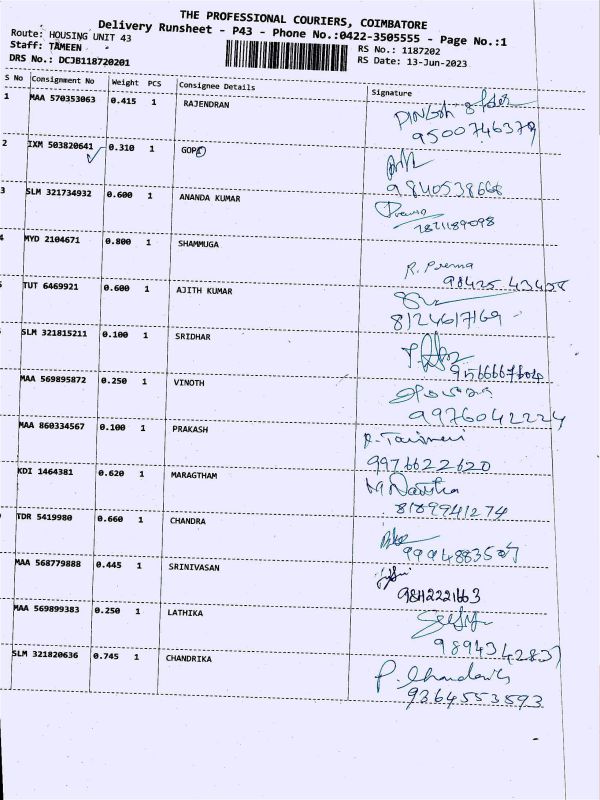 THE PROFESSIONAL COURIERS, COIMBATORE
Delivery Runsheet - P43 - Phone No.:0422-3505555 - Page No.:1
Route: HOUSING UNIT 43
Staff: TAMEEN
RS No.: 1187202
DRS No.: DCJB118720201
RS Date: 13-Jun-2023
S No Consignment No Weight PCS Consignee Details Signature
1 MAA 570353063 0.415 1 RAJENDRAN
9500746379
2 IXM 503820641 0.310 1 GOPI
9840538668
3 SLM 321734932 0.600 1 ANANDA KUMAR
Prema
7871189098
4 MYD 2104671 0.800 1 SHAMMUGA
R. Prema
98425 43458
TUT 6469921 0.600 1 AJITH KUMAR
8124617169
SLM 321815211 0.100 1 SRIDHAR
9566667604
MAA 569895872 0.250 1 VINOTH
9976042224
MAA 860334567 0.100 1 PRAKASH
9976622620
KDI 1464381 0.620 1 MARAGTHAM
8189941274
TDR 5419980 0.660 1 CHANDRA
9994883507
MAA 568779888 0.445 1 SRINIVASAN
9842221663
MAA 569899383 0.250 1 LATHIKA
9894342837
SLM 321820636 0.745 1 CHANDRIKA
9364553593